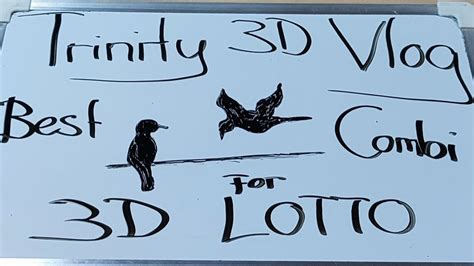 Trinity 3D Vlog
Best Combi
for
3D LOTTO